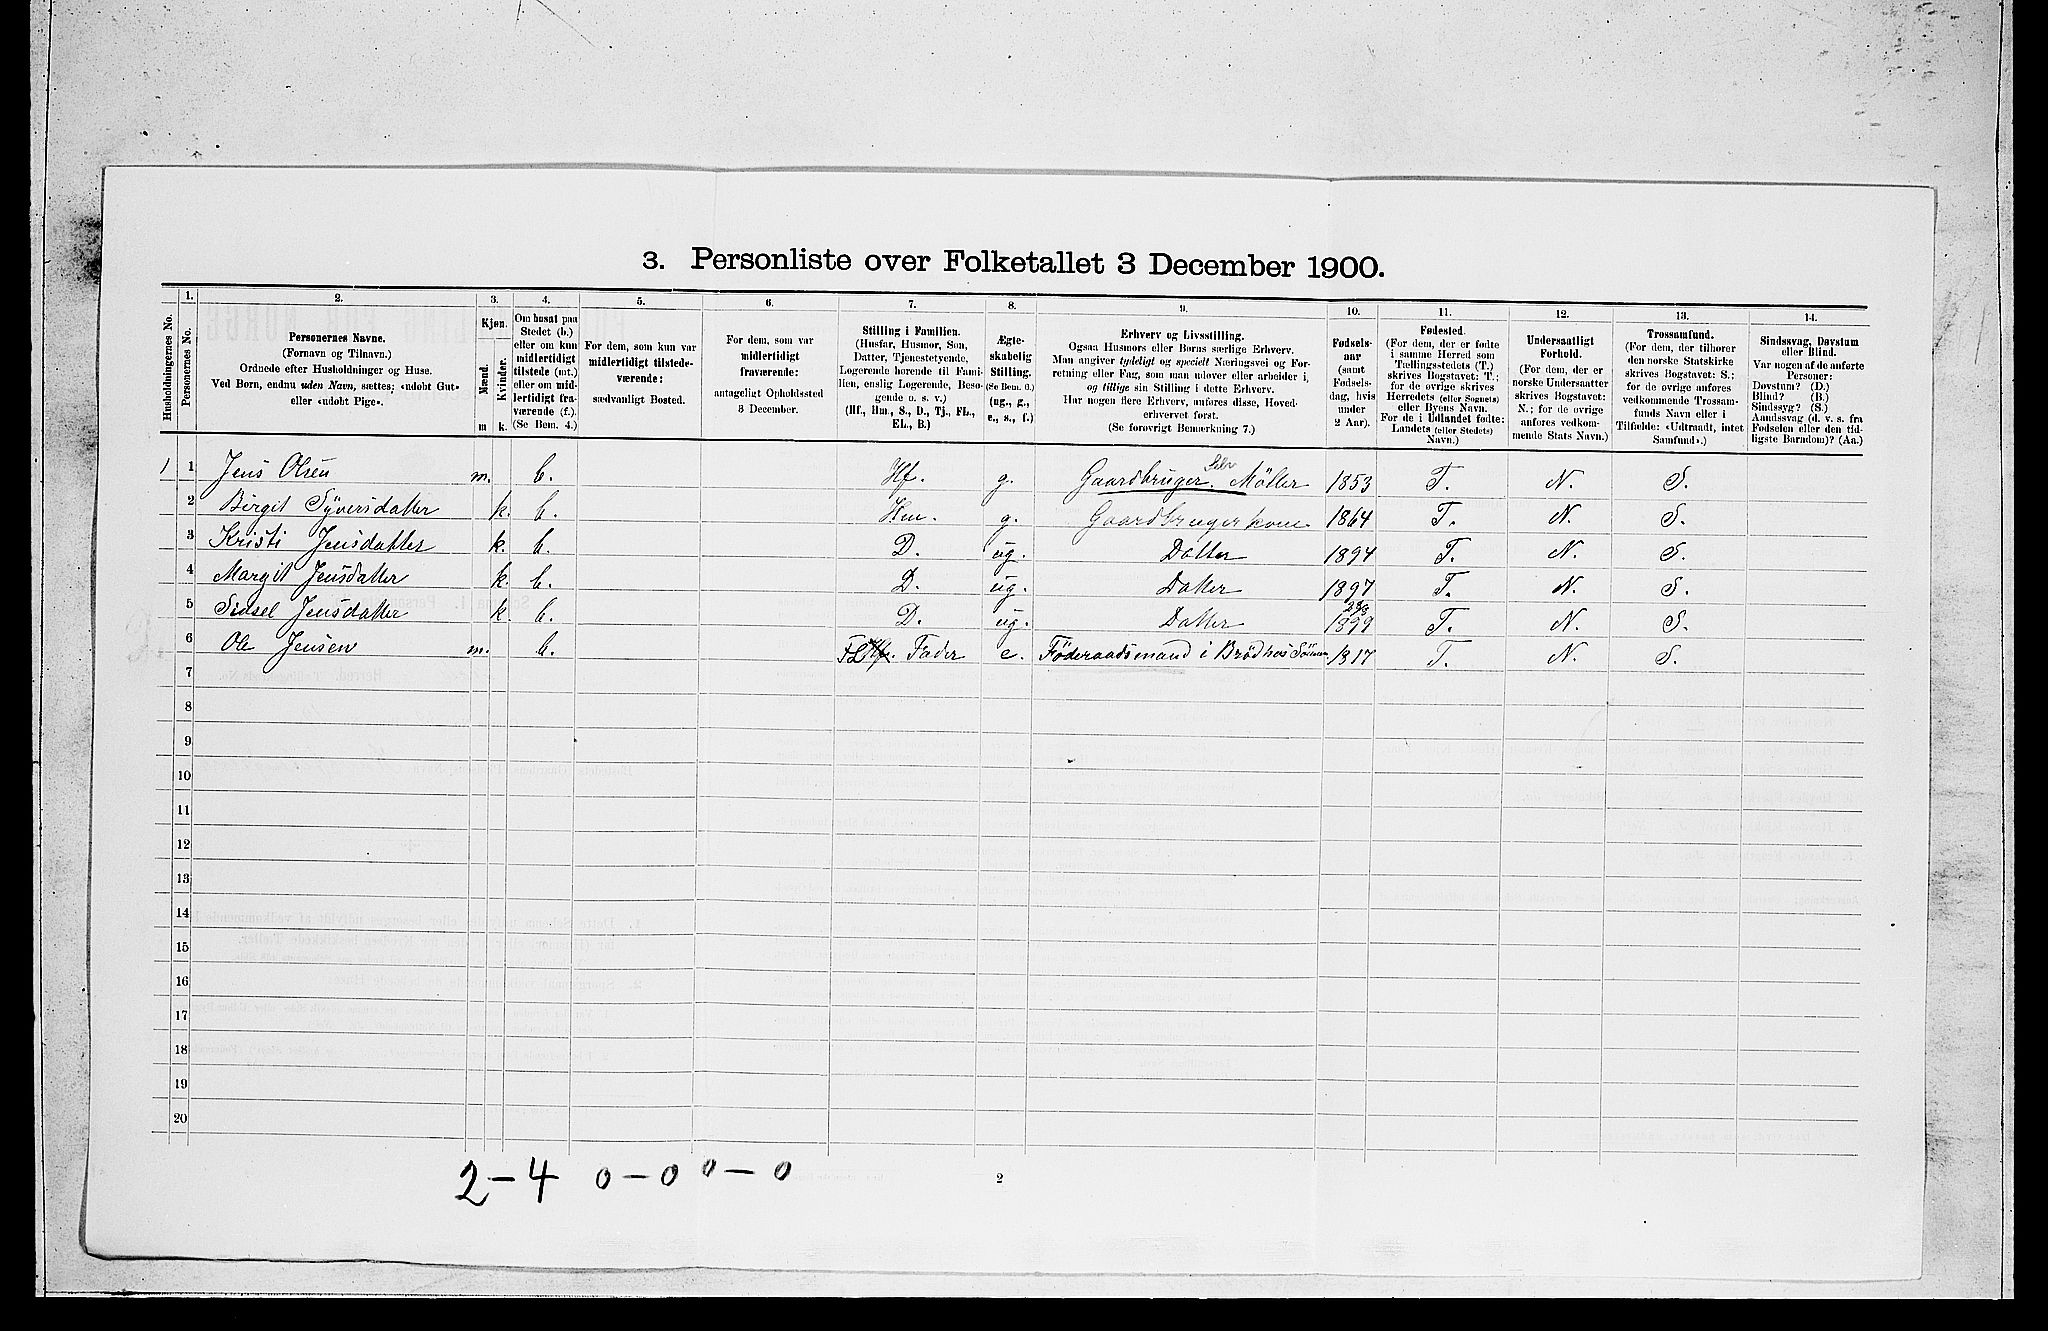 3. Personliste over Folketallet 3 December 1900.
Husholdningernes No.
1. Personernes No.
2. Personernes Navne.
(Fornavn og Tilnavn.)
Ordnede efter Husholdninger og Huse.
Ved Børn, endnu uden Navn, sættes: «udøbt Gut»
eller «udøbt Pige».
3. Kjøn.
Mænd. m
Kvinder. k.
4. Om bosat paa
Stedet (b.)
eller om kun
midlertidigt
tilstede (mt.)
eller om mid-
lertidigt fra-
værende (f.).
(Se Bem. 4.)
5. For dem, som kun var
midlertidigt tilstede-
værende:
sædvanligt Bosted.
6. For dem, som var
midlertidigt
fraværende:
antageligt Opholdssted
3 December.
7. Stilling i Familien.
(Husfar, Husmor, Søn,
Datter, Tjenestetyende,
Logerende hørende til Fami-
lien, enslig Logerende, Beso-
gende o. s. v.)
(Hf., Hm., S., D., Tj., FL.,
EL., B.)
8. Ægte-
skabelig
Stilling.
(Se Bem. 6.)
(ug., g.,
e., s., f.)
9. Erhverv og Livsstilling.
Ogsaa Husmors eller Børns særlige Erhverv.
Man angiver tydeligt og specielt Næringsvei og For-
retning eller Fag, som man udøver eller arbeider i,
og tillige sin Stilling i dette Erhverv.
Har nogen flere Erhverv, anføres disse, Hoved-
erhvervet først.
(Se forøvrigt Bemærkning 7.)
10. Fødsels-
aar
(samt
Fødsels-
dag, hvis
under
2 Aar).
11. Fødested.
(For dem, der er fødte
i samme Herred som
Tællingsstedets (T.)
skrives Bogstavet: T.;
for de øvrige skrives
Herredets (eller Sognets)
eller Byens Navn.
For de i Udlandet fødte:
Landets (eller Stedets)
Navn.)
12. Undersaatligt
Forhold.
(For dem, der er
norske Undersaatter
skrives Bogstavet:
N.; for de øvrige
anføres vedkom-
mende Stats Navn.)
13. Trossamfund.
(For dem, der tilhører
den norske Statskirke
skrives Bogstavet: S.;
for de øvrige anføres
vedkommende Trossam-
funds Navn eller i
Tilfælde: «Udtraadt, intet
Samfund».)
14. Sindssvag, Døvstum
eller Blind.
Var nogen af de anførte
Personer:
Døvstum? (D.)
Blind? (B.)
Sindssyg? (S.)
Aandssvag (d. v. s. fra
Fødselen eller den tid-
ligste Barndom)? (Aa.)
1 1 Jens Olsen m. b. Hf. g. Gaardbruger. Selv Møller 1853 T. N. S.
2 Birgit Syversdatter k. b. Hm. g. Gaardbrugerkone 1864 T. N. S.
3 Kristi Jensdatter k. b. D. ug. Datter 1894 T. N. S.
4 Margit Jensdatter k. b. D. ug. Datter 1897 T. N. S.
5 Sidsel Jensdatter k. b. D. ug. Datter 1899 T. N. S.
6 Ole Jensen m. b. FL Hf. Fader e. Föderaadsmand i Brød hos Sönnen 1817 T. N. S.
7
8
9
10
11
12
13
14
15
16
17
18
19
20
2 – 4 0 – 0 0 – 0
2